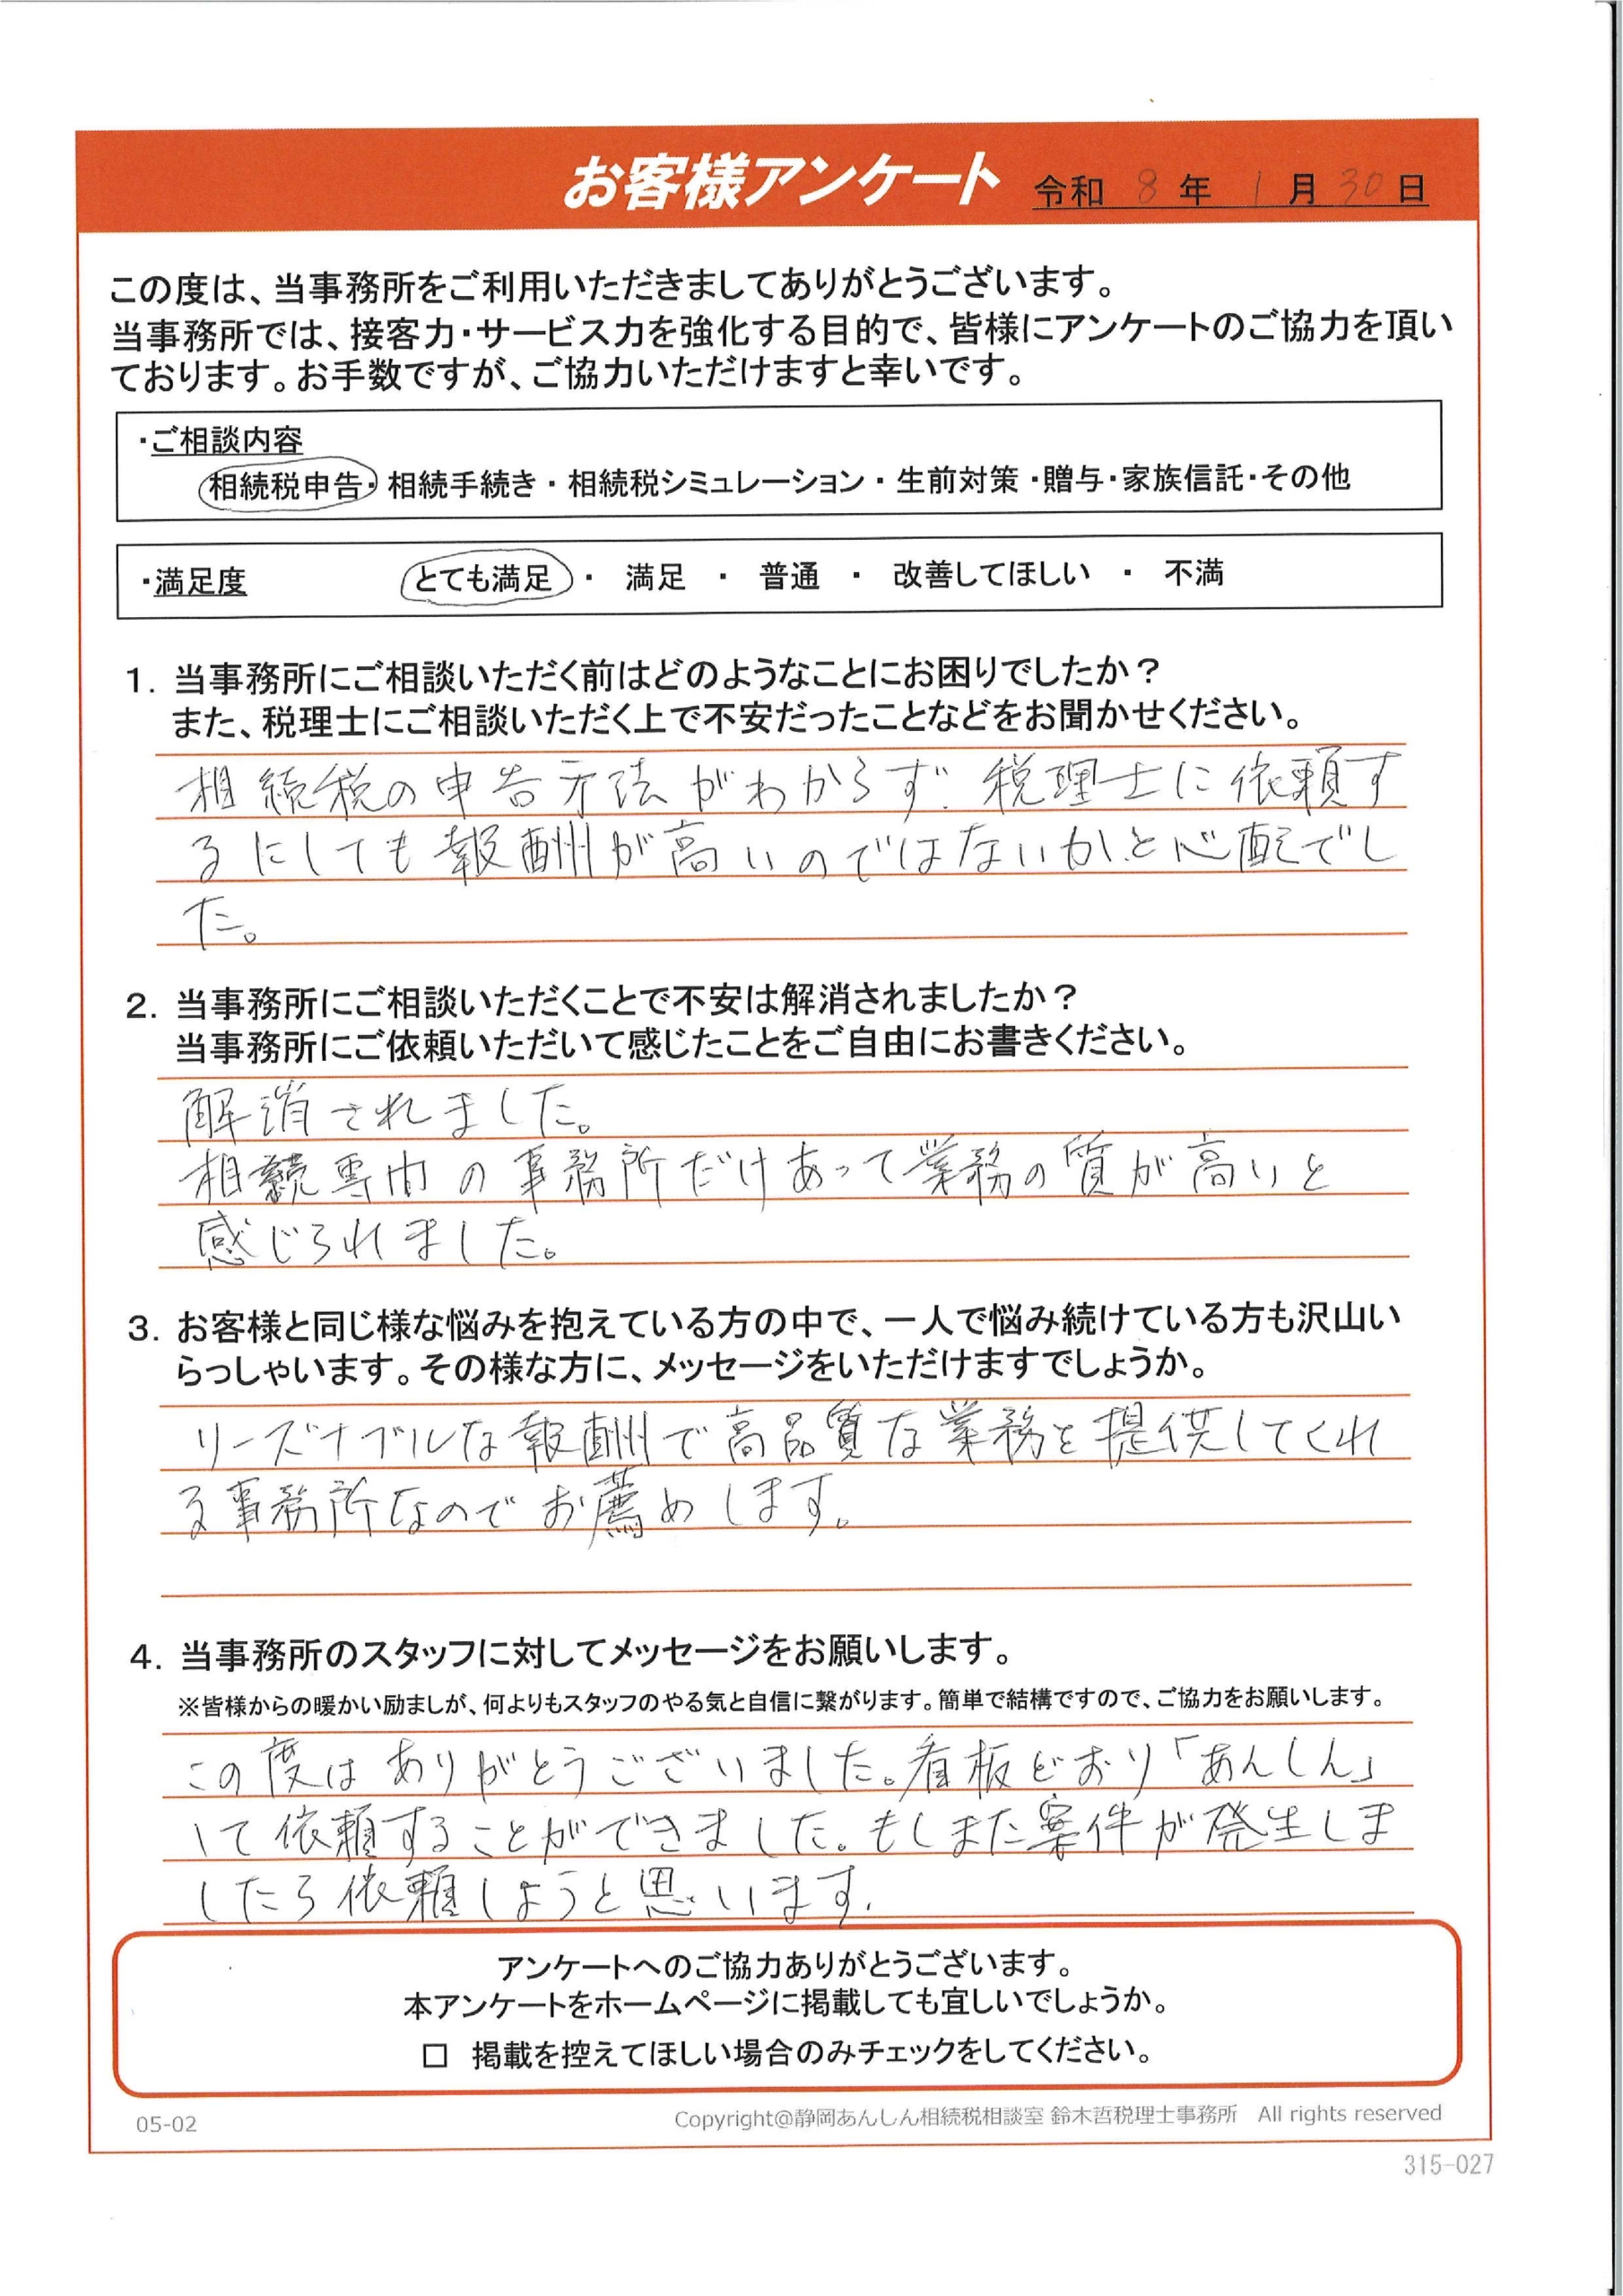 お客様アンケート 令和 8 年 1 月 30 日
この度は、当事務所をご利用いただきましてありがとうございます。
当事務所では、接客力・サービス力を強化する目的で、皆様にアンケートのご協力を頂い
ております。お手数ですが、ご協力いただけますと幸いです。
・ご相談内容
相続税申告・相続手続き・相続税シミュレーション・生前対策・贈与・家族信託・その他
・満足度 とても満足 ・ 満足 ・ 普通 ・ 改善してほしい ・ 不満
1. 当事務所にご相談いただく前はどのようなことにお困りでしたか？
また、税理士にご相談いただく上で不安だったことなどをお聞かせください。
相続税の申告方法がわからず、税理士に依頼す
るにしても報酬が高いのではないかと心配でし
た。
2. 当事務所にご相談いただくことで不安は解消されましたか？
当事務所にご依頼いただいて感じたことをご自由にお書きください。
解消されました。
相続専門の事務所だけあって業務の質が高いと
感じられました。
3. お客様と同じ様な悩みを抱えている方の中で、一人で悩み続けている方も沢山い
らっしゃいます。その様な方に、メッセージをいただけますでしょうか。
リーズナブルな報酬で高品質な業務を提供してくれ
る事務所なのでお薦めします。
4. 当事務所のスタッフに対してメッセージをお願いします。
※皆様からの暖かい励ましが、何よりもスタッフのやる気と自信に繋がります。簡単で結構ですので、ご協力をお願いします。
この度はありがとうございました。看板どおり「あんしん」
して依頼することができました。もしまた案件が発生しま
したら依頼しようと思います.
アンケートへのご協力ありがとうございます。
本アンケートをホームページに掲載しても宜しいでしょうか。
□ 掲載を控えてほしい場合のみチェックをしてください。
05-02 Copyright@静岡あんしん相続税相談室 鈴木哲税理士事務所 All rights reserved
315-027